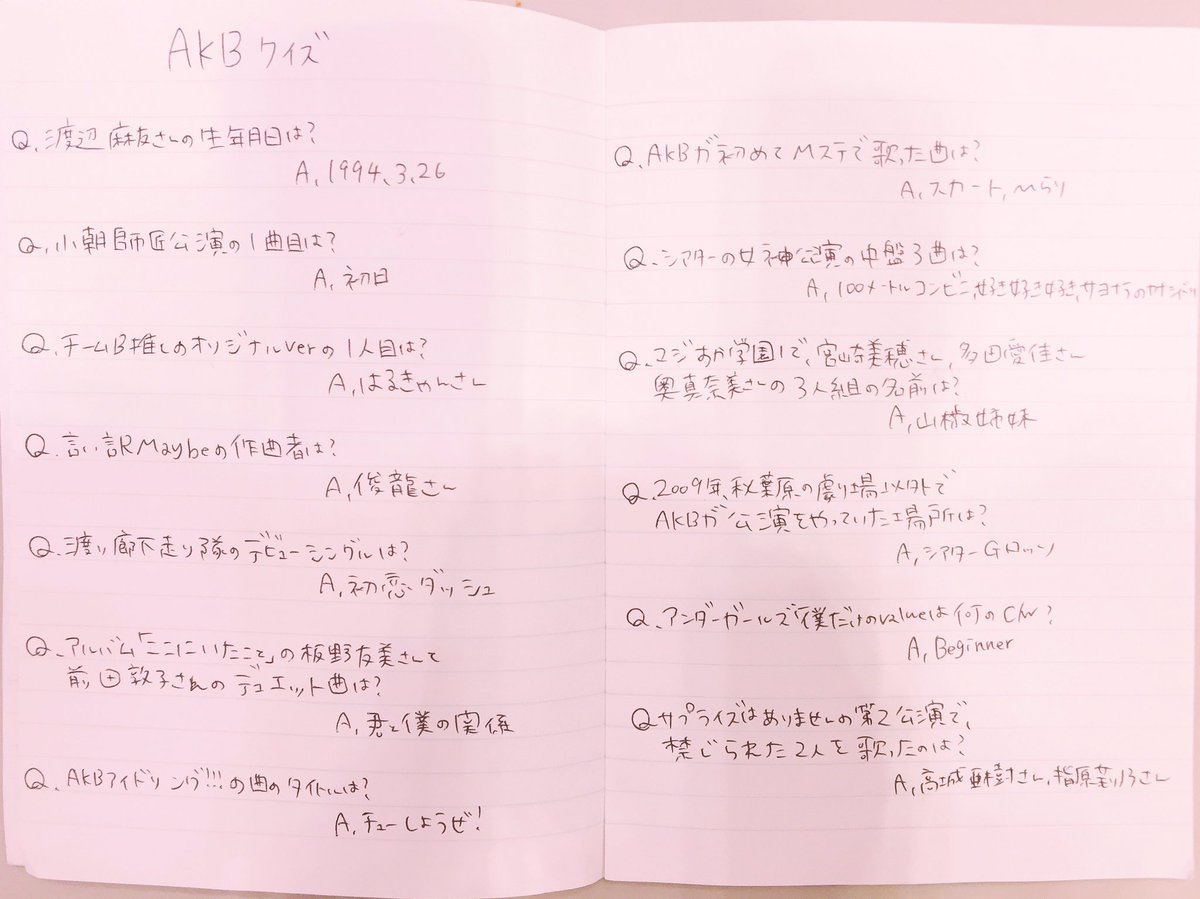 AKBクイズ
Q、渡辺麻友さんの生年月日は?
A、1994、3、26
Q、小朝師匠公演の1曲目は?
A、初日
Q、チームB推しのオリジナルverの1人目は?
A、はるきゃんさん
Q、言い訳Maybeの作曲者は?
A、俊龍さん
Q、渡り廊下走り隊のデビューシングルは?
A、初恋ダッシュ
Q、アルバム「ここにいたこと」の板野友美さんと
前田敦子さんのデュエット曲は?
A、君と僕の関係
Q、AKBアイドリング!!!の曲のタイトルは?
A、チューしようぜ!
Q、AKBが初めてMステで歌った曲は?
A、スカート、ひらり
Q、シアターの女神公演の中盤3曲は?
A、100メートルコンビニ,好き好き好き,サヨナラのカナシバリ
Q、マジすか学園1で、宮崎美穂さん,多田愛佳さん
奥真奈美さんの3人組の名前は?
A、山椒姉妹
Q、2009年、秋葉原の劇場以外で
AKBが公演をやっていた場所は?
A、シアターGロッソ
Q、アンダーガールズ「僕だけのvalueは何のC/W?
A、Beginner
Qサプライズはありませんの第2公演で、
禁じられた2人を歌ったのは?
A、高城亜樹さん、指原莉乃さん